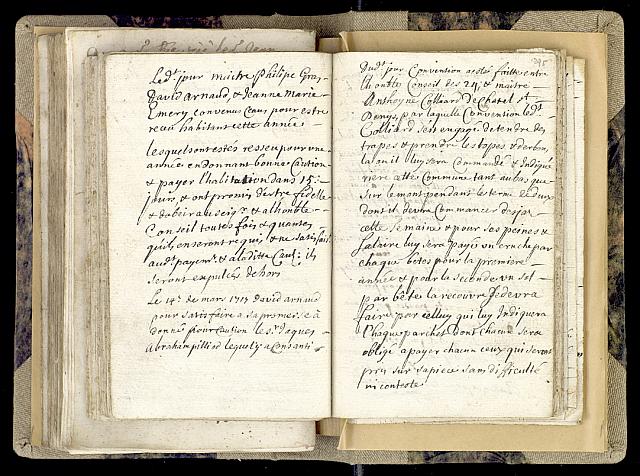 Led.t jour maitre Philipe Gra,
David arnaud, & Jeanne Marie
Emery convenus Ceans pour estre
receu habitans cette année
Lesquels ont estés resseu pour une
année en donnant bonne Caution
& payer l'habitation dans 15:
jours, & ont promis d'estre fidelle
& d'obeir au seig.r & a l'honble
Conseil toutes fois & quantes
qu'ils en seront requis, & ne satisfais
aud.t payem.t & a ladite Caut: ils
seront expulcés dehors
Le 14.e de mars 1717 David arnaud
pour satisfaire a sa promesse à
donné pour caution le Sr. Jaques
Abraham pilliod lequel y a Consanti
395
Dud.t jour Convention a estés faitte entre
l'honble Conseil des 24, & maitre
Anthoyne Colliard de Chatel St
Denys, par laquelle Convention led.t
Colliard s'est engagé de tendre des
trapes & prendre les topes & derbon,
la où il luy sera Commandé & Indiqué
riere cette Commune tant au bas que
sur le mont pendant le terme de deux
dont il devra Commancer des ja
cette semaine & pour ses peines &
salaire luy sera payé un cruche par
chaque bêtes pour la premiere
année & pour la seconde un sol
par bête la recouvre se devra
faire par celluy qui luy Indiquera
Chaque parchet Dont chacun sera
obligé a payer chacun ceux qui seront
pris sur sa piece sans difficulté
ni conteste